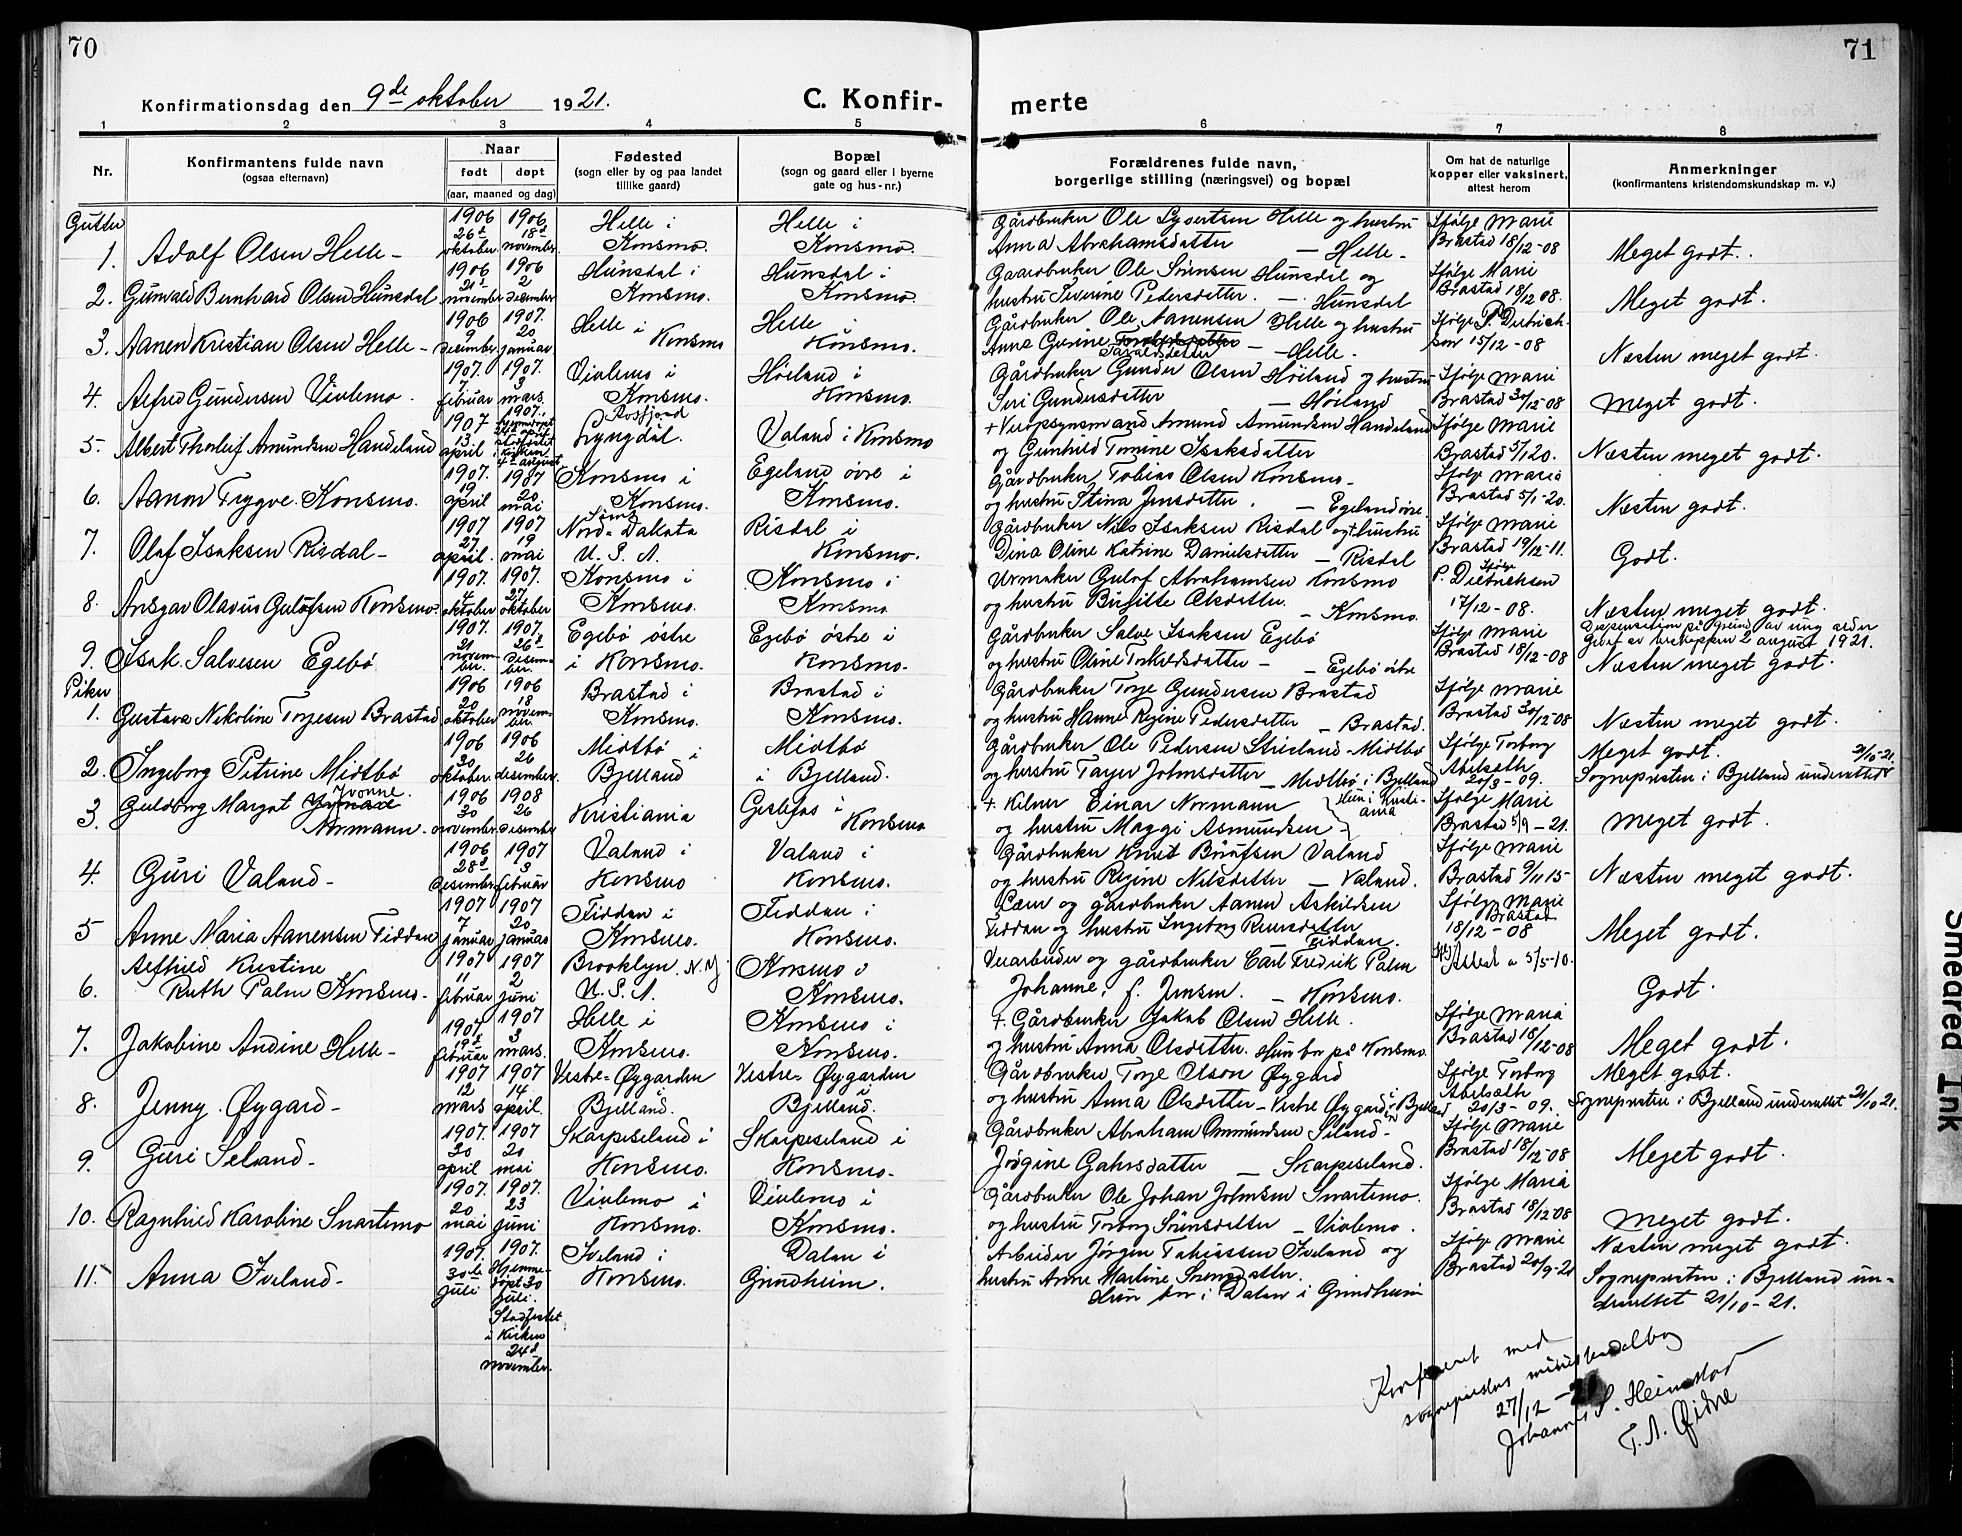 70
Konfirmationsdag den 9de oktober 1921.
C. Konfir-
1 2 3 4 5
Nr.
Konfirmantens fulde navn
(ogsaa efternavn)
Naar
født døpt
(aar, maaned og dag)
Fødested
(sogn eller by og paa landet
tillike gaard)
Bopæl
(sogn og gaard eller i byerne
gate og hus-nr.)
Gutter
1. Adolf Olsen Helle - 1906 26d oktober 1906 18d november Helle i Konsmo. Helle i Konsmo.
2. Gunvald Bernhard Olsen Hunsdal 1906 21d november 1906 2 desember Hunsdal i Konsmo. Hunsdal i Konsmo.
3. Aanen Kristian Olsen Helle - 1906 9 desember 1907. 20 januar. Helle i Konsmo Helle Konsmo.
4. Alfred Gundersen Vivlemo. 1907. 7 februar 1907. 3 mars. Vivlemo i Konsmo. Høiland i Konsmo.
5. Albert Thorleif Amundsen Handeland 1907 13. april 1907. kirken 4de august Rosfjord Lyngdal. Valand i Konsmo
6. Aanon Trygve Konsmo. 1907. 19 april 1907 20 mai Konsmo i Konsmo. Egeland øvre i Konsmo.
7. Olaf Isaksen Risdal - 1907 27 april. 1907 19 mai Nord-Dakota U.S.A. Risdal i Konsmo.
8. Ansgar Olavus Gulofsen Konsmo. 1907. 4 oktober 1907. 27 oktober Konsmo i Konsmo. Konsmo i Konsmo
9. Isak Salvesen Egebø 1907. 21 novem-ber. 1907. 26d desem-ber. Egebø østre i Konsmo. Egebø østre i Konsmo.
Piker
1. Gustava Nikoline Torjesen Brastad 1906 20 oktober 1906 18 novem-ber. Brastad i Konsmo. Brastad i Konsmo.
2. Ingeborg Petrine Midtbø 1906 30 oktober. 1906 26 desember. Midtbø i Bjelland Midtbø i Bjelland.
3. Guldborg Margot Yvonne Normann. 1906 30 november 1908 26 desember Kristiania Gislefos i Konsmo
4. Guri Valand - 1906 28d desember 1907 3 februar Valand i Konsmo Valand i Konsmo.
5 Anne Maria Aanensen Fiddan 1907 7 januar 1907 20 januar Fiddan i Konsmo. Fiddan i Konsmo.
6. Alfhild Kristine Ruth Palm Konsmo. 1907 11 februar 1907 2 juni Brooklyn N.Y. U.S.A. Konsmo i Konsmo.
7. Jakobine Andine Helle - 1907 19d februar 1907 3 mars. Helle i Konsmo. Konsmo i Konsmo.
8. Jenny Øygard - 1907 12 mars 1907 14 april. Vestre-Øygarden i Bjelland. Vestre-Øygarden Bjelland.
9. Guri Seland - 1907. 30 april 1907 20 mai Skarpeseland i Konsmo. Skarpeseland i Konsmo.
10. Ragnhild Karoline Snartemo 1907. 20 mai 1907. 23 juni Vivlemo i Konsmo. Vivlemo i Konsmo.
11. Anna Iveland - 1907. 30te juli 1907. Hjemme-døpt 30 juli. Stadfestet i kirken 24d november. Iveland i Konsmo. Dalen i Grindheim.
71
merte
6 7 8
Forældrenes fulde navn,
borgerlige stilling (næringsvei) og bopæl
Om hat de naturlige
kopper eller vaksinert,
attest herom
Anmerkninger
(konfirmantens kristendomskundskap m. v.)
Gårdbruker Ole Syvertsen Helle og hustru Anna Abrahamsdatter - Helle - Ifølge Marie Brastad 18/12-08 Meget godt.
Gaardbruker Ole Sørensen Hunsdal og hustru Severine Pedersdatter. - Hunsdal Ifølge Marie Brastad 18/12 08. Meget godt.
Gårdbruker Ole Aanensen Helle og hustru Anne Gurine Taraldsdatter - Helle. Ifølge P. Dietrich-son 15/12-08 Næsten meget godt.
Gårdbruker Gunder Olsen Høiland og hustru Siri Gundersdatter - Høiland Ifølge Marie Brastad 30/12-08 Meget godt.
+ Veiopsynsmand Amund Amundsen Handeland og Gunhild Tomine Isaksdatter Ifølge Marie Brastad 5/1 20. Næsten meget godt.
Gårdbruker Tobias Olsen Konsmo - og hustru Stina Jensdatter. - Egeland øvre. Ifølge Maria Brastad 5/1-20. Næsten godt.
Gårdbruker Nils Isaksen Risdal og hustru Dina Oline Katrine Danielsdatter - Risdal Ifølge Marie Brastad 19/12-11. Godt.
Urmaker Gulof Abrahamsen Konsmo og hustru Birgitte Olsdatter. - Konsmo. Ifølge P. Dietrichsen 17/12-08. Næsten meget godt.
Gårdbruker Salve Isaksen Egebø og hustru Oline Torkildsdatter - - Egebø østre Ifølge Marie Brastad 18/12-08 Dispensation på grund av ung alder givet av biskoppen 2 august 1921. Næsten meget godt.
Gårdbruker Torje Gundersen Brastad og hustru Hanne Regine Pedersdatter - Brastad. Ifølge Marie Brastad 30/12-08 Næsten meget godt.
Gårdbruker Ole Pedersen Stiesland - Midtbø og hustru Tager Johnsdatter - Midtbø i Bjelland Ifølge Torborg Abelseth 20/3-09. Meget godt. Sognepresten i Bjelland underrettet 21/10-21.
+ Kelner Einar Normann og hustru Maggi Asmundsen - Hun i Kristi-ania Ifølge Marie Brastad 5/9-21. Meget godt.
Gårdbruker Knut Brøufsen Valand og hustru Regine Nilsdatter - Valand. Ifølge Marie Brastad 9/11 15 Næsten meget godt.
Lærer og gårdbruker Aanen Askildsen Fiddan og hustru Ingeborg Reiersdatter Fiddan. Ifølge Marie Brastad 18/12-08 Meget godt.
Veiarbeider og gårdbruker Carl Fredrik Palm Johanne, f. Jensen. - Konsmo. Attest a 5/5-10. Godt.
+ Gårdbruker Jakob Olsen Helle. og hustru Anna Olsdatter. Hun bor på Konsmo. Ifølge Maria Brastad 18/12-08 Meget godt.
Gårdbruker Torje Olson Øygard og hustru Anna Olsdatter - Vestre Øygard i Bjelland Ifølge Torborg Abelseth 20/3-09. Meget godt. Sognepresten i Bjelland underrettet 21/10 21.
Gårdbruker Abraham Ommundsen Seland - Jørgine Gahrsdatter - Skarpeseland. Ifølge Marie Brastad 18/12-08 Meget godt.
Gårdbruker Ole Johan Johnsen Snartemo. og hustru Torborg Sørensdatter - Vivlemo. Ifølge Maria Brastad 18/12 08 Meget godt.
Arbeider Jørgen Tobiassen Iveland og hustru Anne Martine Sørensdatter. Hun bor i Dalen i Grindheim Ifølge Marie Brastad 20/9-21 Næsten meget godt. Sognepresten i Bjelland un-derrettet 21/10-21.
Konferert med
sogneprestens ministerialbog
27/12-21
Johannes S. Heimstad
T. A. Øidne
Smeared Ink